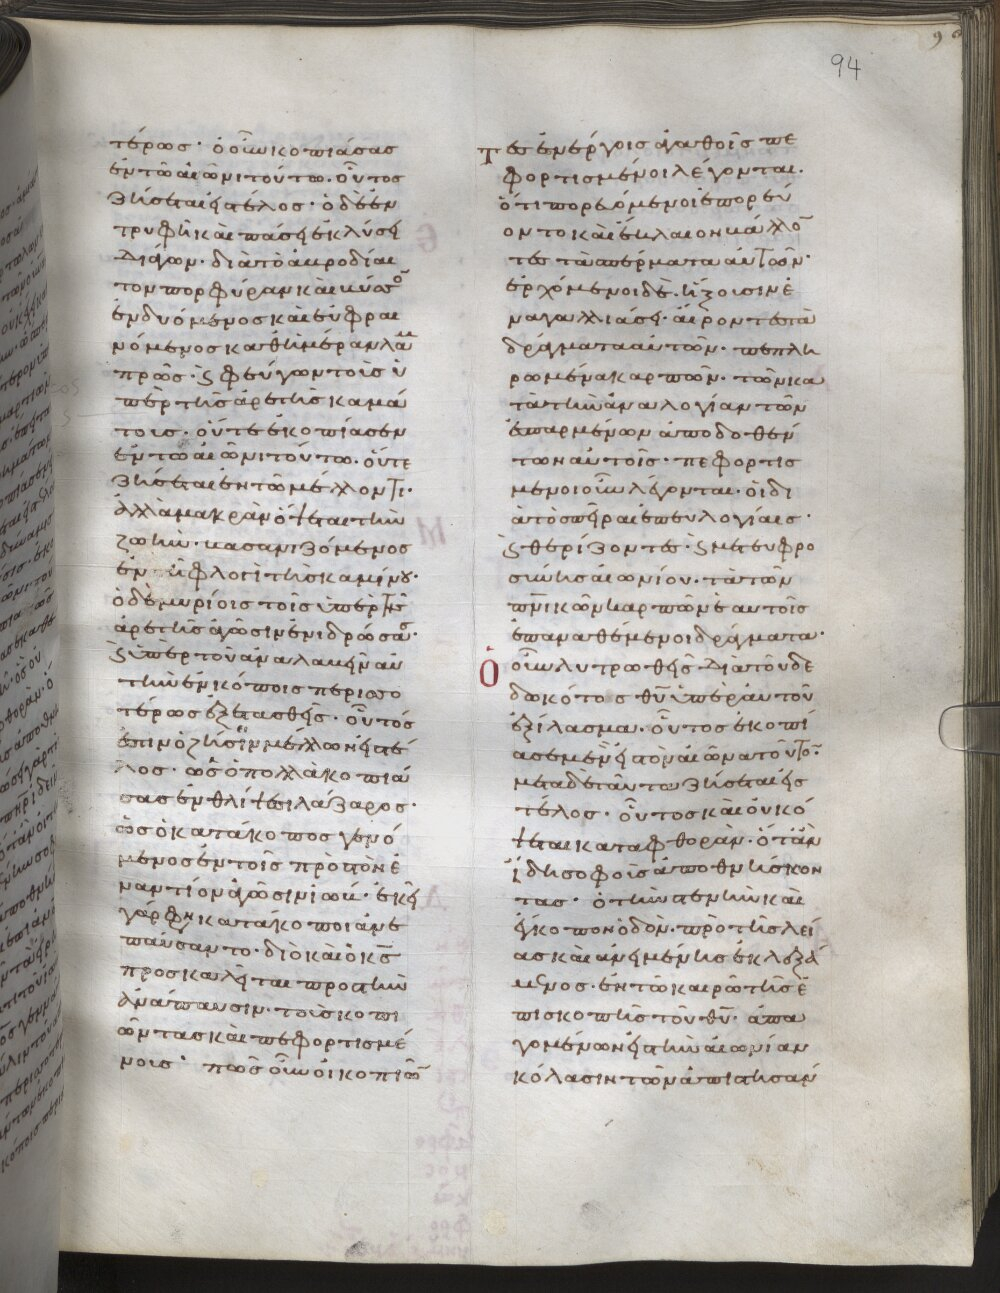 94
τέρως· ὁ οὖν κοπιάσας
ἐν τῷ αἰῶνι τούτῳ. οὗτος
ζήσεται εἰς τέλος· ὁ δὲ ἐν
τρυφῇ καὶ πάσῃ ἐκλύσει
διάγων· διὰ τὸ ἀκροδίαι
τον πορφύραν καὶ βύσσον
ἐνδυόμενος καὶ εὐφραι
νόμενος καθημέραν λαμ
πρῶς· ϗ φεύγων τοὺς ὑ
πὲρ τῆς ἀρετῆς καμά
τους· οὔτε ἐκοπίασεν
ἐν τῷ αἰῶνι τούτῳ. οὔτε
ζήσεται ἐν τῷ μέλλοντι·
ἀλλὰ μακρὰν ὄψεται τὴν
ζωήν· βασανιζόμενος
ἐν τῇ φλογὶ τῆς καμίνου·
ὁ δὲ μυρίοις τοῖς ὑπὲρ τῆς
ἀρετῆς ἀγῶσιν ἐνιδρώσας·
ϗ ὑπὲρ τοῦ ἀναλαβεῖν αὐ
τὴν ἐν κόποις περισσο
τέρως ἐξετασθεὶς· οὗτός
ἐστιν ὁ ζήσειν μέλλων εἰς τέ
λος· ὡς ὁ πολλὰ κοπιά
σας ἐν θλίψεσι λάζαρος·
ὡς ὁ κατάκοπος γενό
μενος ἐν τοῖς πρὸς τὸν ἐ
ναντίον ἀγῶσιν ἰώβ· ἐκεῖ
γάρ φησι κατάκοποι ἀνε
παύσαντο· διὸ καὶ ὁ κς
προσκαλεῖται πρὸς τὴν
ἀνάπαυσιν· τοὺς κοπι
ῶντας καὶ πεφορτισμέ
νους· πῶς οὖν οἱ κοπιῶν
τες ἐν ἔργοις ἀγαθοῖς πε
φορτισμένοι λέγονται·
ὅτι πορευόμενοι ἐπορεύ
οντο καὶ ἔκλαιον βάλλον
τες τὰ σπέρματα αὐτῶν·
ἐρχόμενοι δὲ ἥξουσιν ἐ
ν ἀγαλλιάσει· αἴροντες τὰ
δράγματα αὐτῶν· πεπλη
ρωμένα καρπῶν· τῶν κα
τὰ τὴν ἀναλογίαν τῶν
ἐσπαρμένων ἀποδοθέν
των αὐτοῖς· πεφορτισ
μένοι οὖν λέγονται· οἱ δι
ὰ τὸ σπεῖραι ἐπ' εὐλογίαις·
ϗ θερίζοντες· ϗ μετ' εὐφρο
σύνης αἰωνίου· τὰ τῶν
πνικῶν καρπῶν ἑαυτοῖς
ἐπαναθέμενοι δράγματα·
Ὁ οὖν λυτρωθεὶς διὰ τοῦ δε
δωκότος θῦ ὑπὲρ αὐτοῦ
ἐξίλασμα· οὗτος ἐκοπί
ασε μὲν εἰς τὸν αἰῶνα τοῦτον·
μετὰ δὲ ταῦτα ζήσεται εἰς
τέλος· οὗτος καὶ οὐκ ὄ
ψεται καταφθοράν· ὅταν
ἴδῃ σοφοὺς ἀποθνήσκον
τας· ὁ τὴν στενὴν καὶ
ἔγκοπον ὁδὸν· πρὸ τῆς λεί
ας καὶ ἀνειμένης ἐκλεξά
μενος· ἐν τῷ καιρῷ τῆς ἐ
πισκοπῆς τοῦ θῦ· ἀπα
γομένων εἰς τὴν αἰωνίαν
κόλασιν τῶν ἀπιστησάν